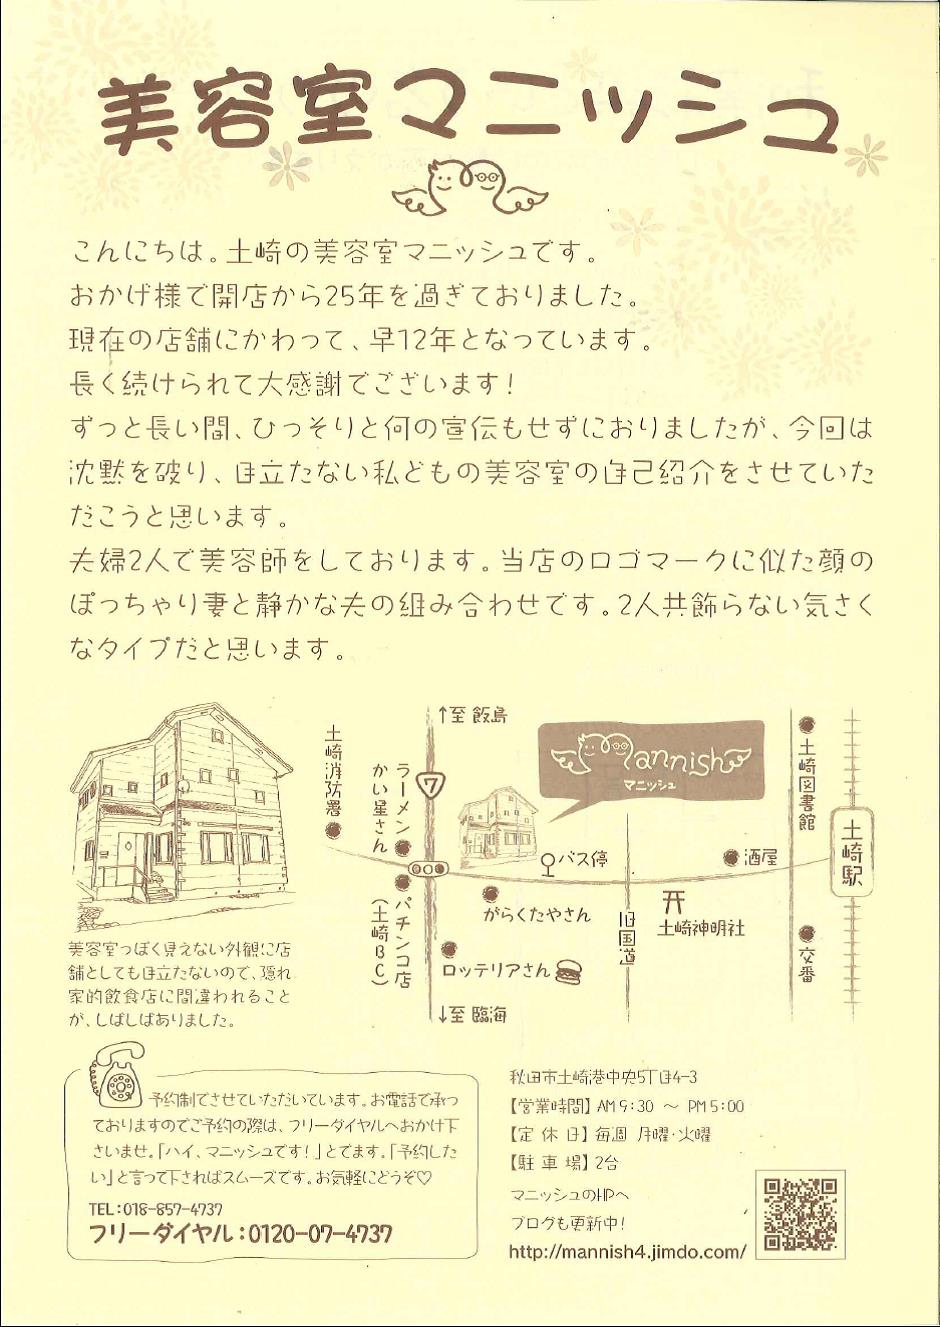 美容室マニッシュ
こんにちは。土崎の美容室マニッシュです。
おかげ様で開店から25年を過ぎておりました。
現在の店舗にかわって、早12年となっています。
長く続けられて大感謝でございます！
ずっと長い間、ひっそりと何の宣伝もせずにおりましたが、今回は
沈黙を破り、目立たない私どもの美容室の自己紹介をさせていた
だこうと思います。
夫婦2人で美容師をしております。当店のロゴマークに似た顔の
ぽっちゃり妻と静かな夫の組み合わせです。2人共飾らない気さく
なタイプだと思います。
土崎消防署
ラーメン
かい星さん
7
↑至 飯島
Mannish
マニッシュ
バス停
酒屋
土崎図書館
土崎駅
がらくたやさん
旧国道
土崎神明社
パチンコ店
(土崎BC)
ロッテリアさん
交番
↓至 臨海
美容室っぽく見えない外観に店
舗としても目立たないので、隠れ
家的飲食店に間違われること
が、しばしばありました。
予約制でさせていただいています。お電話で承っ
ておりますのでご予約の際は、フリーダイヤルへおかけ下
さいませ。「ハイ、マニッシュです！」とでます。「予約した
い」と言って下さればスムーズです。お気軽にどうぞ♡
TEL：018-857-4737
フリーダイヤル：0120-07-4737
秋田市土崎港中央5丁目4-3
【営業時間】 AM 9：30 ～ PM 5：00
【定 休 日】 毎週 月曜・火曜
【駐 車 場】 2台
マニッシュのHPへ
ブログも更新中！
http://mannish4.jimdo.com/